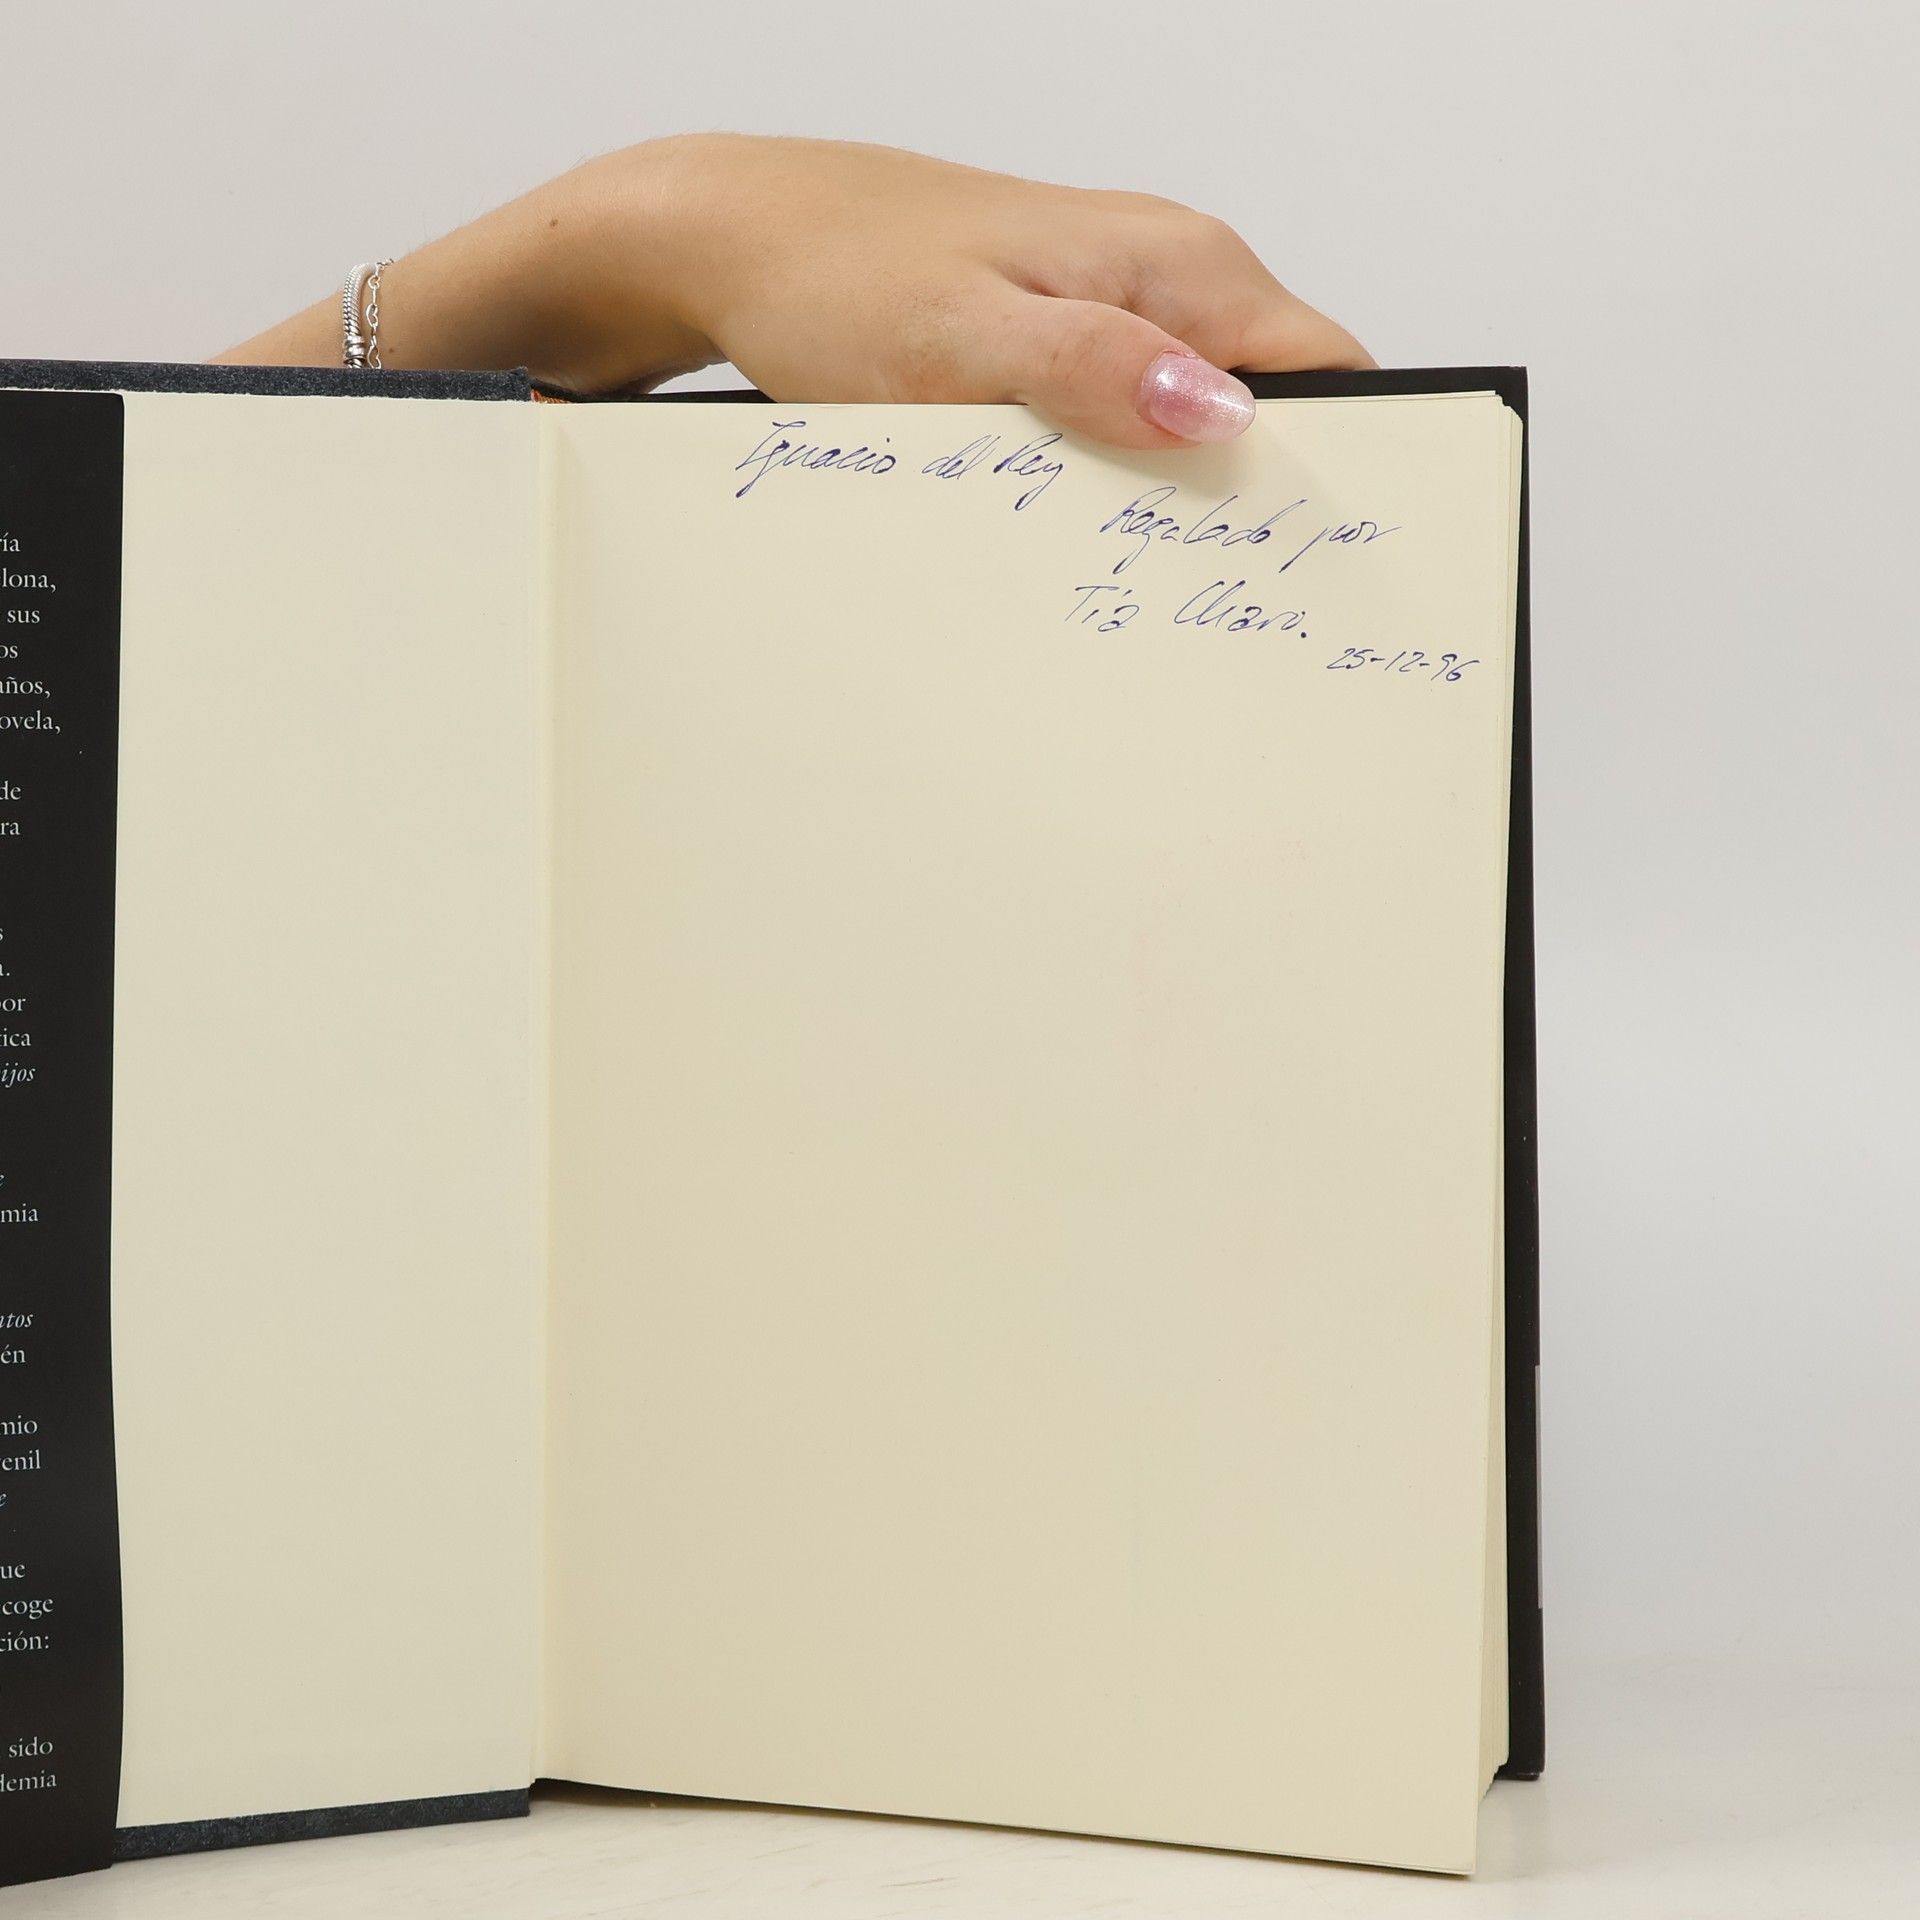 ía
lona,
sus
os
años,
ovela,
de
ra
s
a.
por
tica
ijos
e
mia
ntos
én
mio
enil
e
ue
coge
ción:
sido
demia
Ignacio del Rey
Regalado por
Tía Charo.
25-12-96